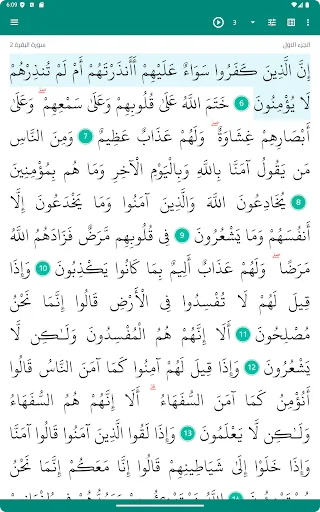 6:09
3
الجزء الاول
سورة البقرة 2
إِنَّ الَّذِينَ كَفَرُوا سَوَاءٌ عَلَيْهِمْ أَأَنذَرْتَهُمْ أَمْ لَمْ تُنذِرْهُمْ
لَا يُؤْمِنُونَ 6 خَتَمَ اللَّهُ عَلَىٰ قُلُوبِهِمْ وَعَلَىٰ سَمْعِهِمْ ۖ وَعَلَىٰ
أَبْصَارِهِمْ غِشَاوَةٌ ۖ وَلَهُمْ عَذَابٌ عَظِيمٌ 7 وَمِنَ النَّاسِ
مَن يَقُولُ آمَنَّا بِاللَّهِ وَبِالْيَوْمِ الْآخِرِ وَمَا هُم بِمُؤْمِنِينَ
8 يُخَادِعُونَ اللَّهَ وَالَّذِينَ آمَنُوا وَمَا يَخْدَعُونَ إِلَّا
أَنفُسَهُمْ وَمَا يَشْعُرُونَ 9 فِي قُلُوبِهِم مَّرَضٌ فَزَادَهُمُ اللَّهُ
مَرَضًا ۖ وَلَهُمْ عَذَابٌ أَلِيمٌ بِمَا كَانُوا يَكْذِبُونَ 10 وَإِذَا
قِيلَ لَهُمْ لَا تُفْسِدُوا فِي الْأَرْضِ قَالُوا إِنَّمَا نَحْنُ
مُصْلِحُونَ 11 أَلَا إِنَّهُمْ هُمُ الْمُفْسِدُونَ وَلَٰكِن لَّا
يَشْعُرُونَ 12 وَإِذَا قِيلَ لَهُمْ آمِنُوا كَمَا آمَنَ النَّاسُ قَالُوا
أَنُؤْمِنُ كَمَا آمَنَ السُّفَهَاءُ ۗ أَلَا إِنَّهُمْ هُمُ السُّفَهَاءُ
وَلَٰكِن لَّا يَعْلَمُونَ 13 وَإِذَا لَقُوا الَّذِينَ آمَنُوا قَالُوا آمَنَّا
وَإِذَا خَلَوْا إِلَىٰ شَيَاطِينِهِمْ قَالُوا إِنَّا مَعَكُمْ إِنَّمَا نَحْنُ